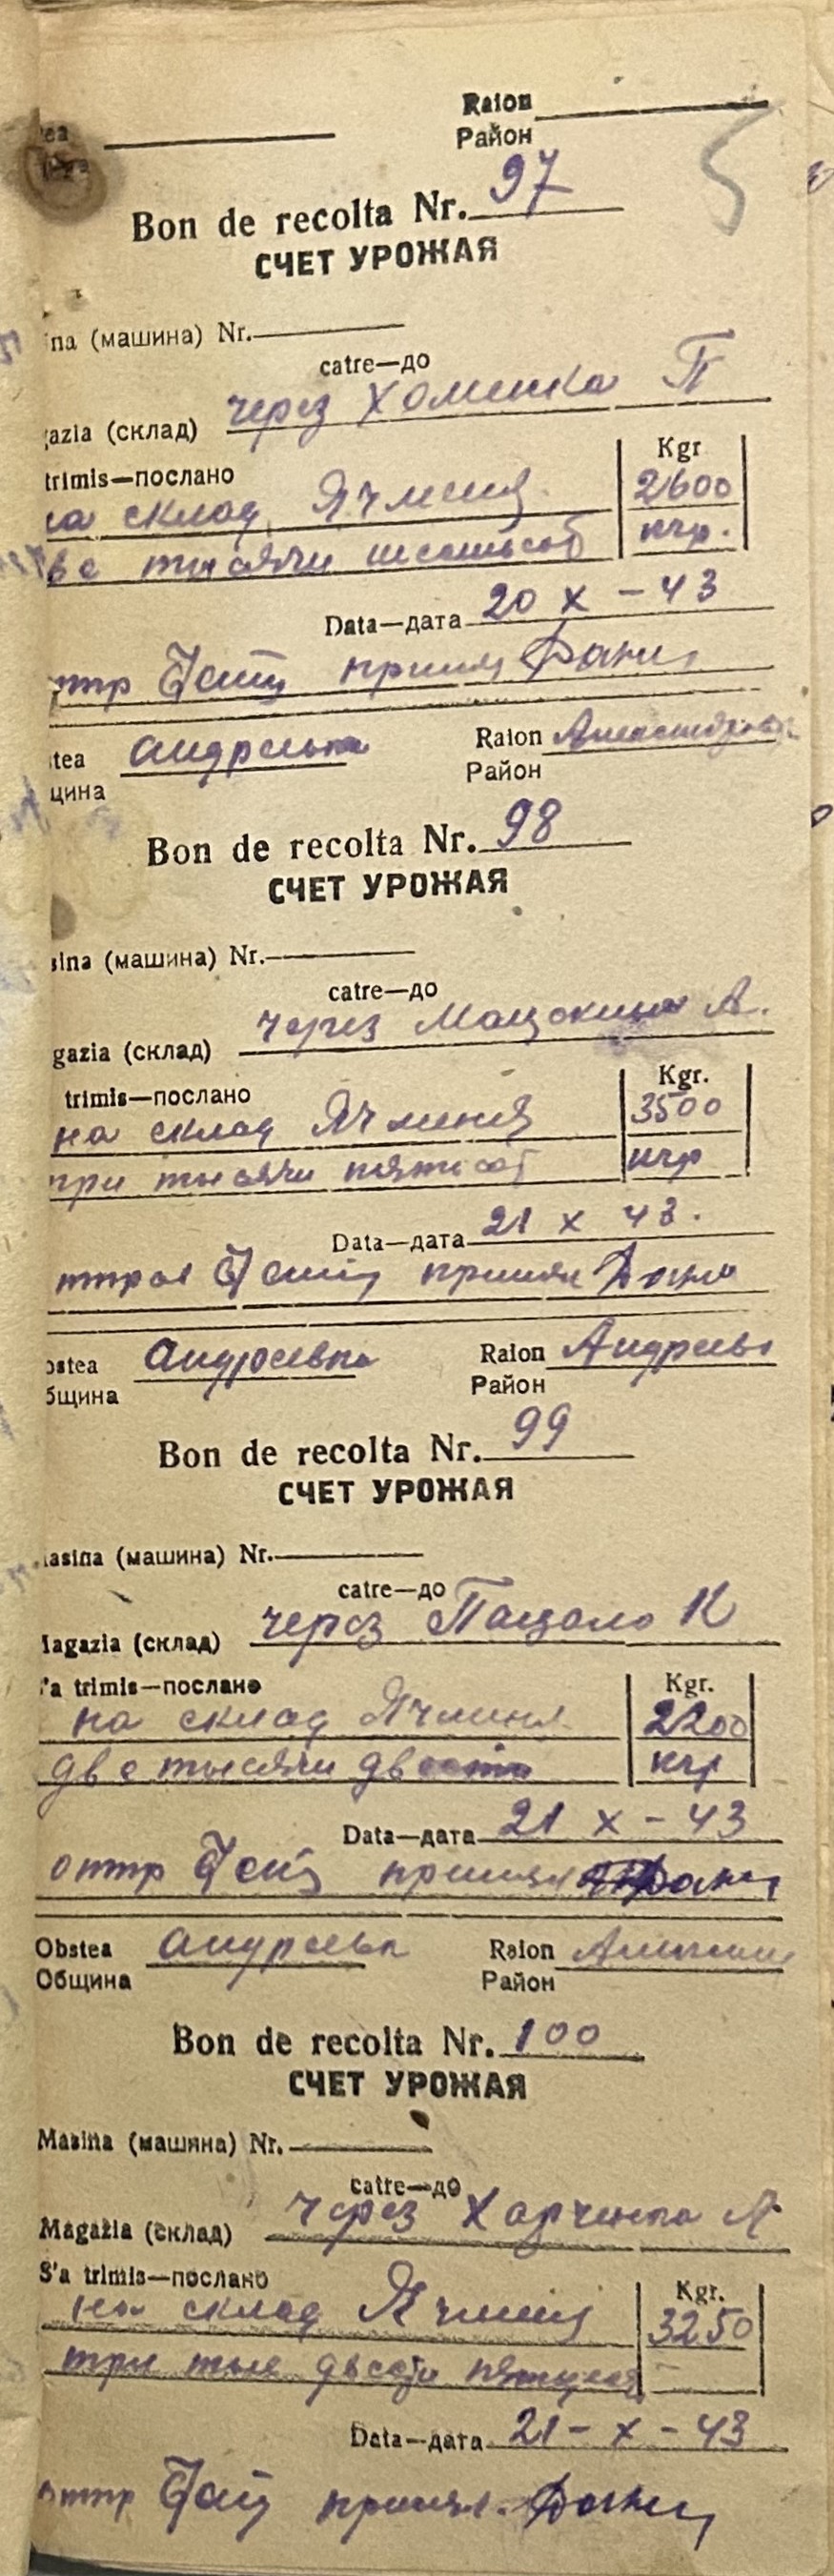 Raion
Район
Bon de recolta Nr. 97
СЧЕТ УРОЖАЯ
na (машина) Nr.
catre—до
gazia (склад) через Хоменка П
trimis—послано
Kgr
на склад Ячменя 2600
две тысячи шестьсот кгр.
Data—дата 20 X - 43
отпр принял
tea Андреевка Raion
щина Район
Bon de recolta Nr. 98
СЧЕТ УРОЖАЯ
sina (машина) Nr.
catre—до
gazia (склад) через А.
trimis—послано
Kgr.
на склад Ячменя 3500
три тысячи пятьсот кгр
Data—дата 21 X 43.
принял
ostea Андреевка Raion Андреев
бщина Район
Bon de recolta Nr. 99
СЧЕТ УРОЖАЯ
asina (машина) Nr.
catre—до
Magazia (склад) через Пацало К
S'a trimis—послано
Kgr.
на склад Ячменя 2200
две тысячи двести кгр
Data—дата 21 X - 43
отпр принял
Obstea Андреевк Raion
Община Район
Bon de recolta Nr. 100
СЧЕТ УРОЖАЯ
Masina (машина) Nr.
catre—до
Magazia (склад) через Харченка А
S'a trimis—послано
Kgr.
на склад Ячменя 3250
три тыс двести пятьдесят
Data—дата 21 - X - 43
отпр принял